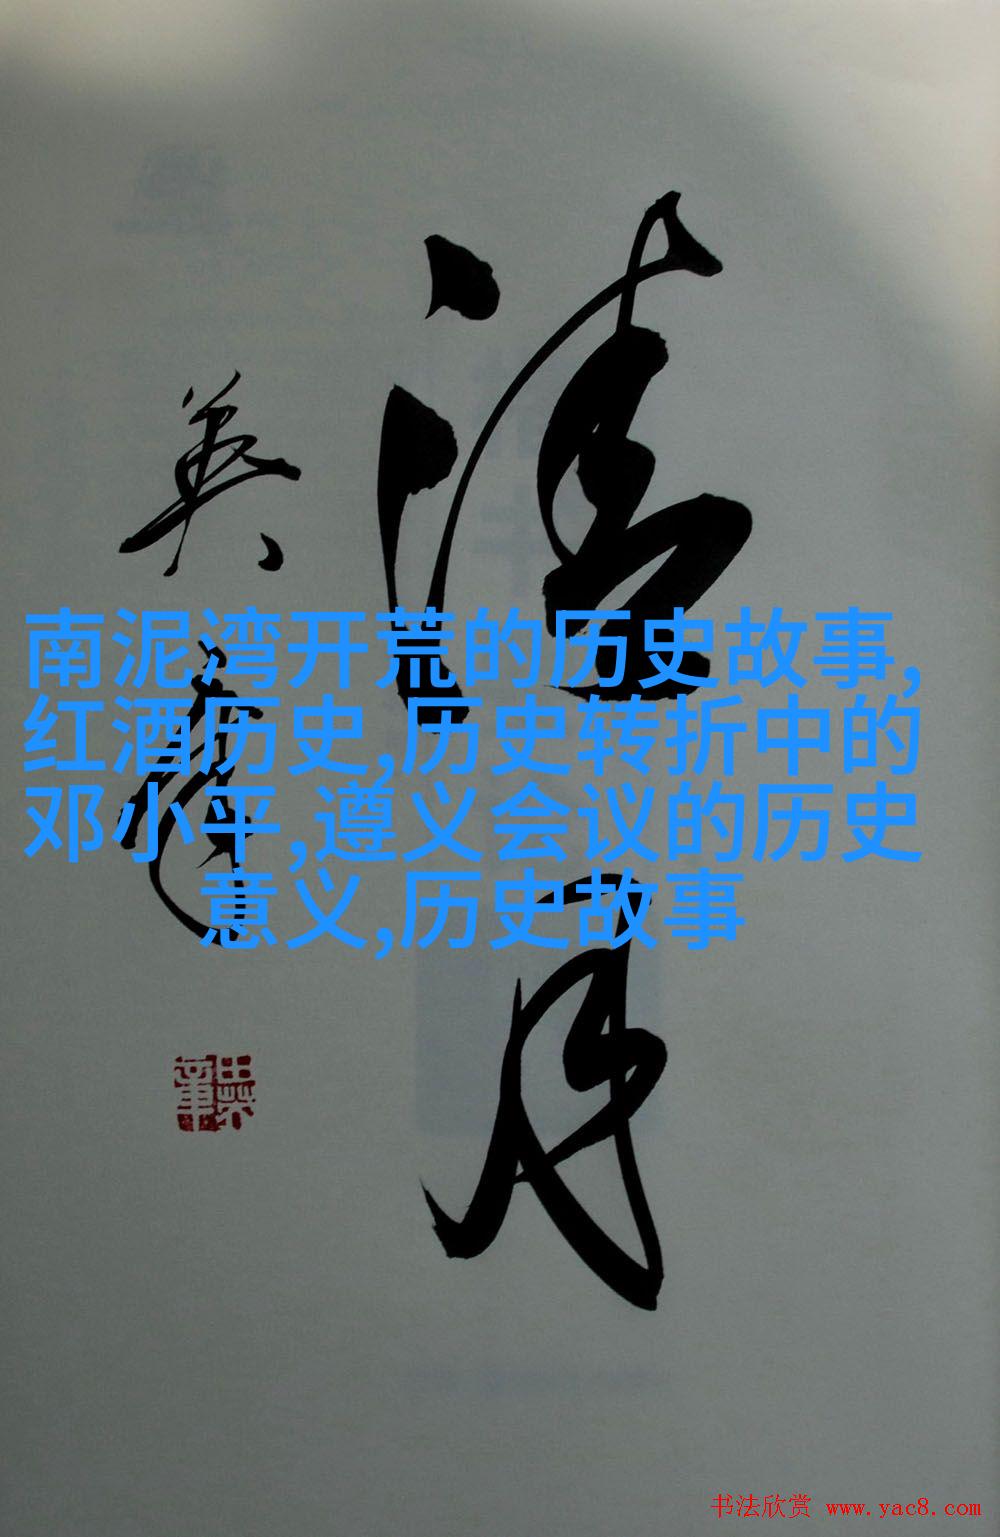 清月
英章
南泥湾开荒的历史故事,
红酒历史,历史转折中的
邓小平,遵义会议的历史
意义,历史故事
书法欣赏 www.yac8.com